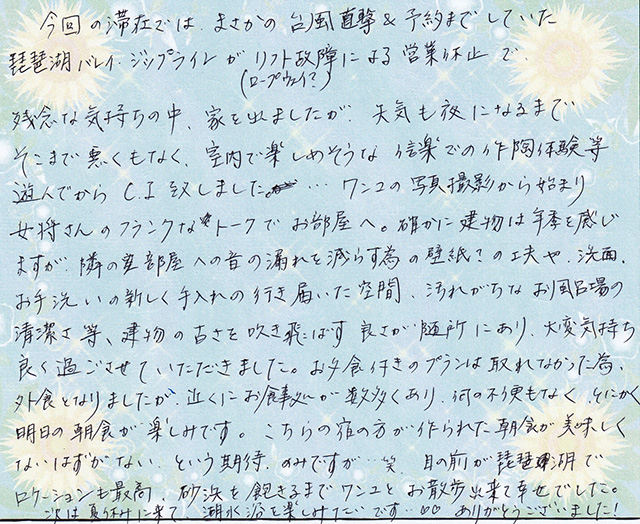 今回の滞在では、まさかの台風直撃&予約までしていた
琵琶湖バレイ・ジップラインがリフト故障による営業休止で、
(ロープウェイ?)
残念な気持ちの中、家を出ましたが、天気も夜になるまで
そこまで悪くもなく、室内で楽しめそうな信楽での作陶体験等
遊んでからC.I致しました。… ワンコの写真撮影から始まり
女将さんのフランクなトークでお部屋へ。確かに建物は年季を感じ
ますが、隣の空部屋への音の漏れを減らす為の壁紙?の工夫や、洗面、
お手洗いの新しく手入れの行き届いた空間、汚れがちなお風呂場の
清潔さ等、建物の古さを吹き飛ばす良さが随所にあり、大変気持ち
良く過ごさせていただきました。お夕食付きのプランは取れなかった為、
外食となりましたが、近くにお食事処が数多くあり、何の不便もなく、とにかく
明日の朝食が楽しみです。こちらの宿の方が作られた朝食が美味しく
ないはずがない、という期待、のみですが…笑、目の前が琵琶湖で
ロケーションも最高、砂浜を飽きるまでワンコとお散歩出来て幸せでした。
次は夏休みに来て、湖水浴を楽しみたいです…♡♡ ありがとうございました!